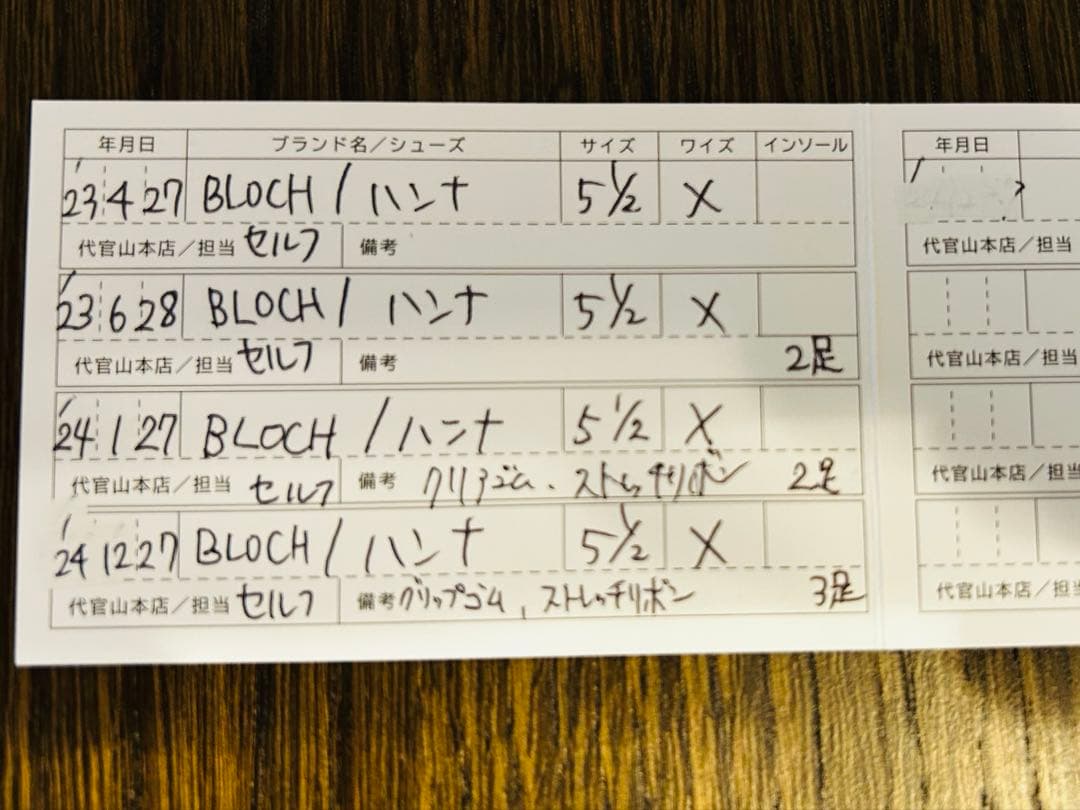 年月日 ブランド名／シューズ サイズ ワイズ インソール
'23 4 27 BLOCH / ハンナ 5 1/2 X
代官山本店／担当 セルフ 備考
'23 6 28 BLOCH / ハンナ 5 1/2 X
代官山本店／担当 セルフ 備考 2足
'24 1 27 BLOCH / ハンナ 5 1/2 X
代官山本店／担当 セルフ 備考 クリアゴム、ストレッチリボン 2足
'24 12 27 BLOCH / ハンナ 5 1/2 X
代官山本店／担当 セルフ 備考 グリップゴム, ストレッチリボン 3足
年月日
代官山本店／担当
代官山本店／担当
代官山本店／担当
代官山本店／担当